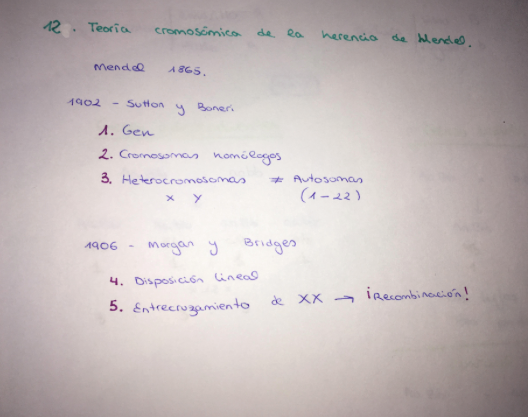 12. Teoría cromosómica de la herencia de Mendel.
Mendel 1865.
1902 - Sutton y Boneri.
1. Gen
2. Cromosomas homólogos
3. Heterocromosomas ≠ Autosomas
x y (1-22)
1906 - Morgan y Bridges
4. Disposición lineal
5. Entrecruzamiento de XX → ¡Recombinación!